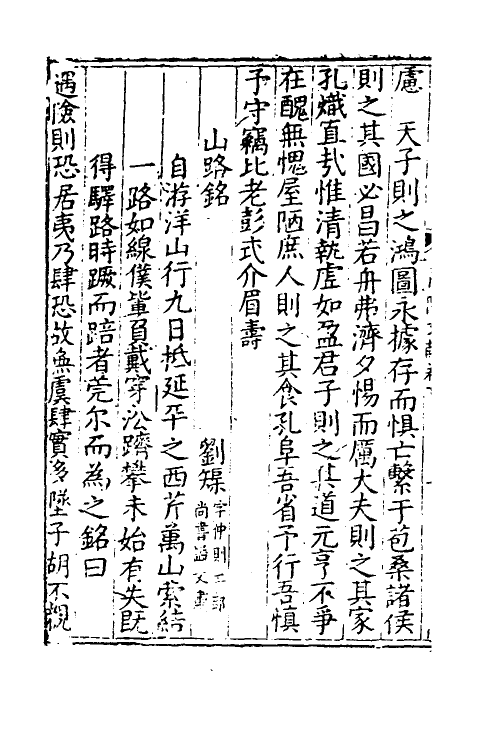 慮　天子則之鴻圖永據存而惧亡繫于苞桑諸侯
則之其國必昌若舟弗濟夕惕而厲大夫則之其家
孔熾直哉惟清執虛如盈君子則之其道元亨不爭
在醜無愧屋陋庶人則之其食孔阜吾省予行吾慎
予守竊比老彭式介眉壽
山路銘
劉榘字仲則工部
尚書謚文
自游洋山行九日抵延平之西芹萬山縈結
一路如線僕輩負戴穿沿躋攀未始有失既
得驛路時蹶而踣者莞尔而為之銘曰
遇險則恐居夷乃肆恐故無虞肆實多墜子胡不觀